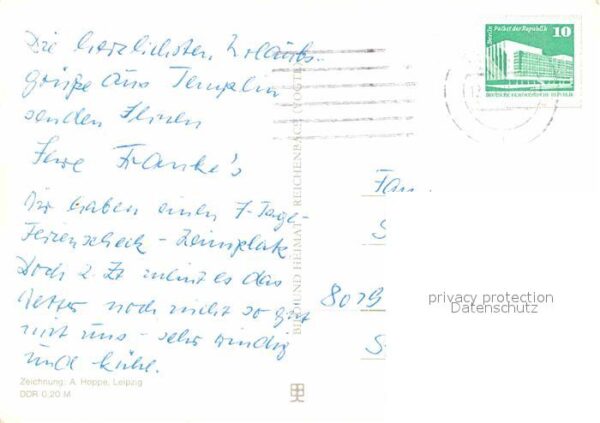 Die herzlichsten Urlaubs-
grüße aus Templin
senden Ihnen
Ihre Franke's
Wir haben einen 7-Tage-
Ferienscheck - Zeltplatz
Doch z. Zt meint es das
Wetter noch nicht so gut
mit uns - sehr windig
und kühl.
Zeichnung: A. Hoppe, Leipzig
DDR 0,20 M
BILD UND HEIMAT REICHENBACH (VOGTL
Berlin, Palast der Republik
10
DEUTSCHE DEMOKRATISCHE REPUBLIK
Fam
S
8029
S
privacy protection
Datenschutz